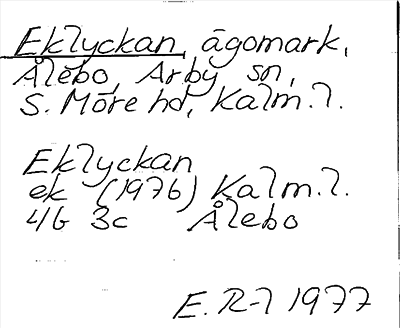 Eklyckan, ägomark,
Ålebo, Arby sn,
S. Möre hd, Kalm.l.
Eklyckan
ek (1976) Kalm.l.
4G 3c Ålebo
E. R-l 1977